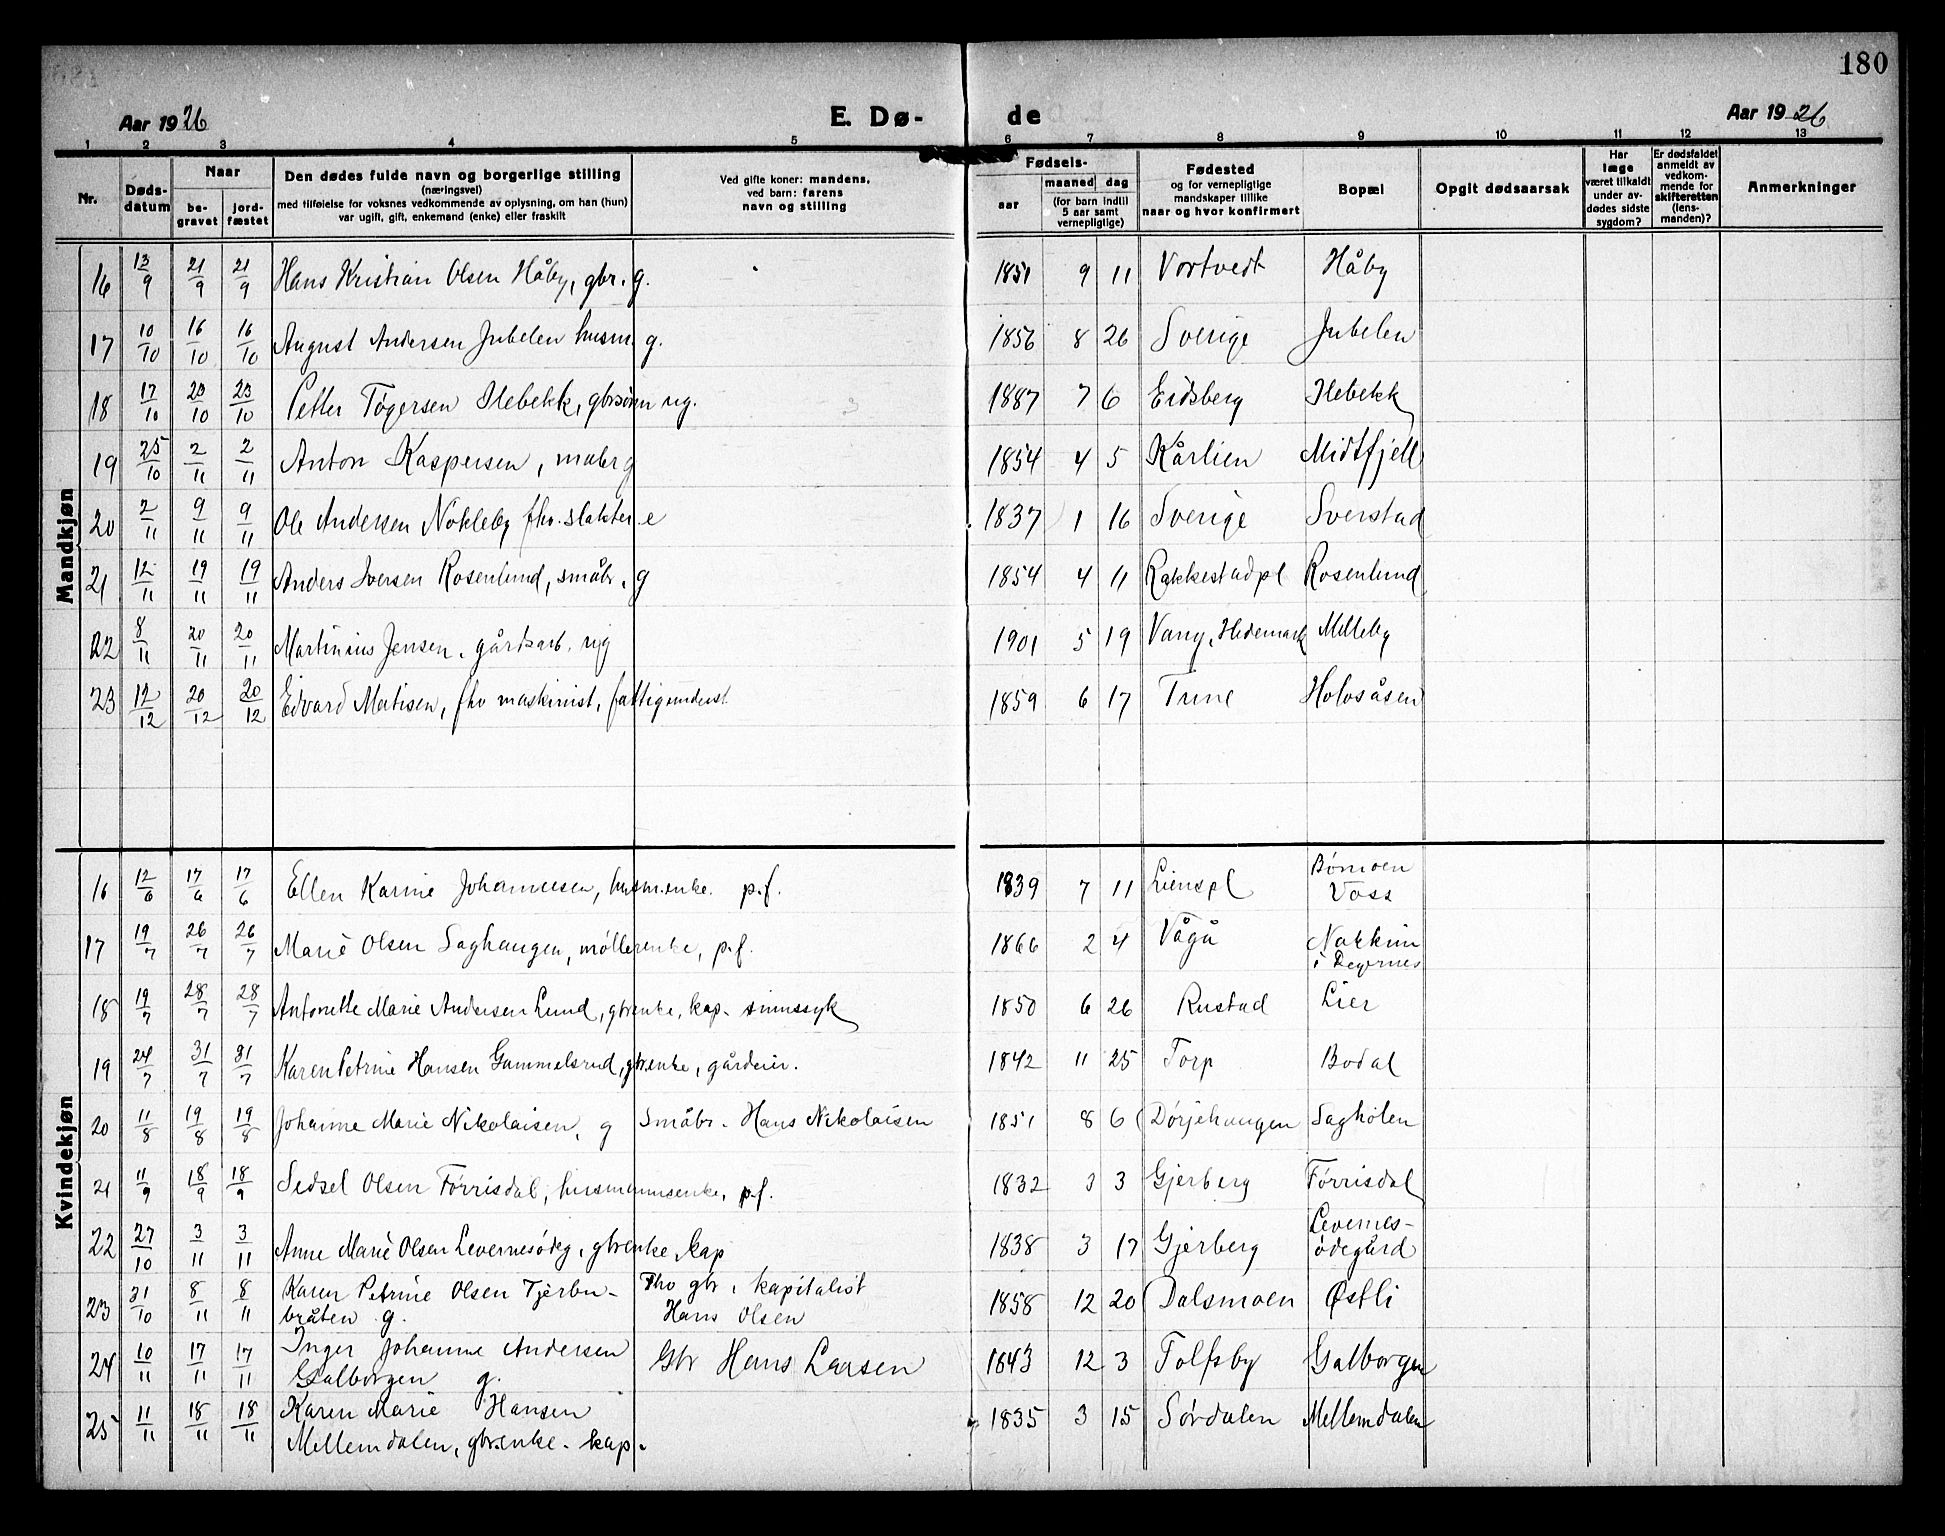 180
Aar 1926 E. Dø- de Aar 1926
1 2 3 4 5 6 7 8 9 10 11 12 13
Nr. Døds-datum Naar be-gravet jord-fæstet Den dødes fulde navn og borgerlige stilling (næringsvei) med tilføielse for voksnes vedkommende av oplysning, om han (hun) var ugift, gift, enkemand (enke) eller fraskilt Ved gifte koner: mandens, ved barn: farens navn og stilling Fødsels- aar maaned dag (for barn indtil 5 aar samt vernepligtige) Fødested og for vernepligtige mandskaper tillike naar og hvor konfirmert Bopæl Opgit dødsaarsak Har læge været tilkaldt under av-dødes sidste sygdom? Er dødsfaldet anmeldt av vedkom-mende for skifteretten (lens-manden)? Anmerkninger
Mandkjøn
16 13/9 21/9 21/9 Hans Kristian Olsen Håby, gbr. g. 1851 9 11 Vortvedt Håby
17 10/10 16/10 16/10 August Andersen Jubelen husm. g. 1856 8 26 Sverige Jubelen
18 17/10 23/10 23/10 Petter Tøgersen Ilebekk, gbrsønn ug. 1887 7 6 Eidsberg Ilebekk
19 25/10 2/11 2/11 Anton Kaspersen, maler g 1854 4 5 Kårlien Midtfjell
20 2/11 9/11 9/11 Ole Andersen Nokleby fhv. slakter. e 1837 1 16 Sverige Sverstad
21 12/11 19/11 19/11 Anders Iversen Rosenlund, småbr. g 1854 4 11 Rakkestadpl Rosenlund
22 8/11 20/11 20/11 Martinius Jensen, gårdsarb. ug 1901 5 19 Vang, Hedemark Melleby
23 12/12 20/12 20/12 Edvard Matisen, fhv maskinist, fattigunderst. 1859 6 17 Tune Holosåsen
Kvindekjøn
16 12/6 17/6 17/6 Ellen Karine Johannesen, husm.enke. p.f. 1839 7 11 Lienspl Bømoen
Voss
17 19/7 26/7 26/7 Marie Olsen Saghaugen, møllerenke, p.f. 1866 2 4 Vågå Nakkim
i Degernes
18 19/7 28/7 28/7 Antonette Marie Andersen Lund, gbrenke, kap. sinnssyk 1850 6 26 Rustad Lier
19 24/7 31/7 31/7 Karen Petrine Hansen Gammelsrud, gbrenke, gårdeier. 1842 11 25 Torp Bodal
20 11/8 19/8 19/8 Johanne Marie Nikolaisen, g Småbr. Hans Nikolaisen 1851 8 6 Dørjehaugen Sagholen
21 11/9 18/9 18/9 Sedsel Olsen Førrisdal, husmannsenke, p.f. 1832 3 3 Gjerberg Førrisdal
22 27/10 3/11 3/11 Anne Marie Olsen Levernesødeg, gbrenke, kap 1838 3 17 Gjerberg Levernes-
ødegård
23 31/10 8/11 8/11 Karen Petrine Olsen Tjerbu- Fhv gbr, kapitalist 1858 12 20 Dalsmoen Østli
bråten g. Hans Olsen
24 10/11 17/11 17/11 Inger Johanne Andersen Gbr Hans Larsen 1843 12 3 Tolfsby Galborgen
Galborgen g.
25 11/11 18/11 18/11 Karen Marie Hansen 1835 3 15 Sørdalen Mellemdalen
Mellemdalen, gbr.enke. kap.